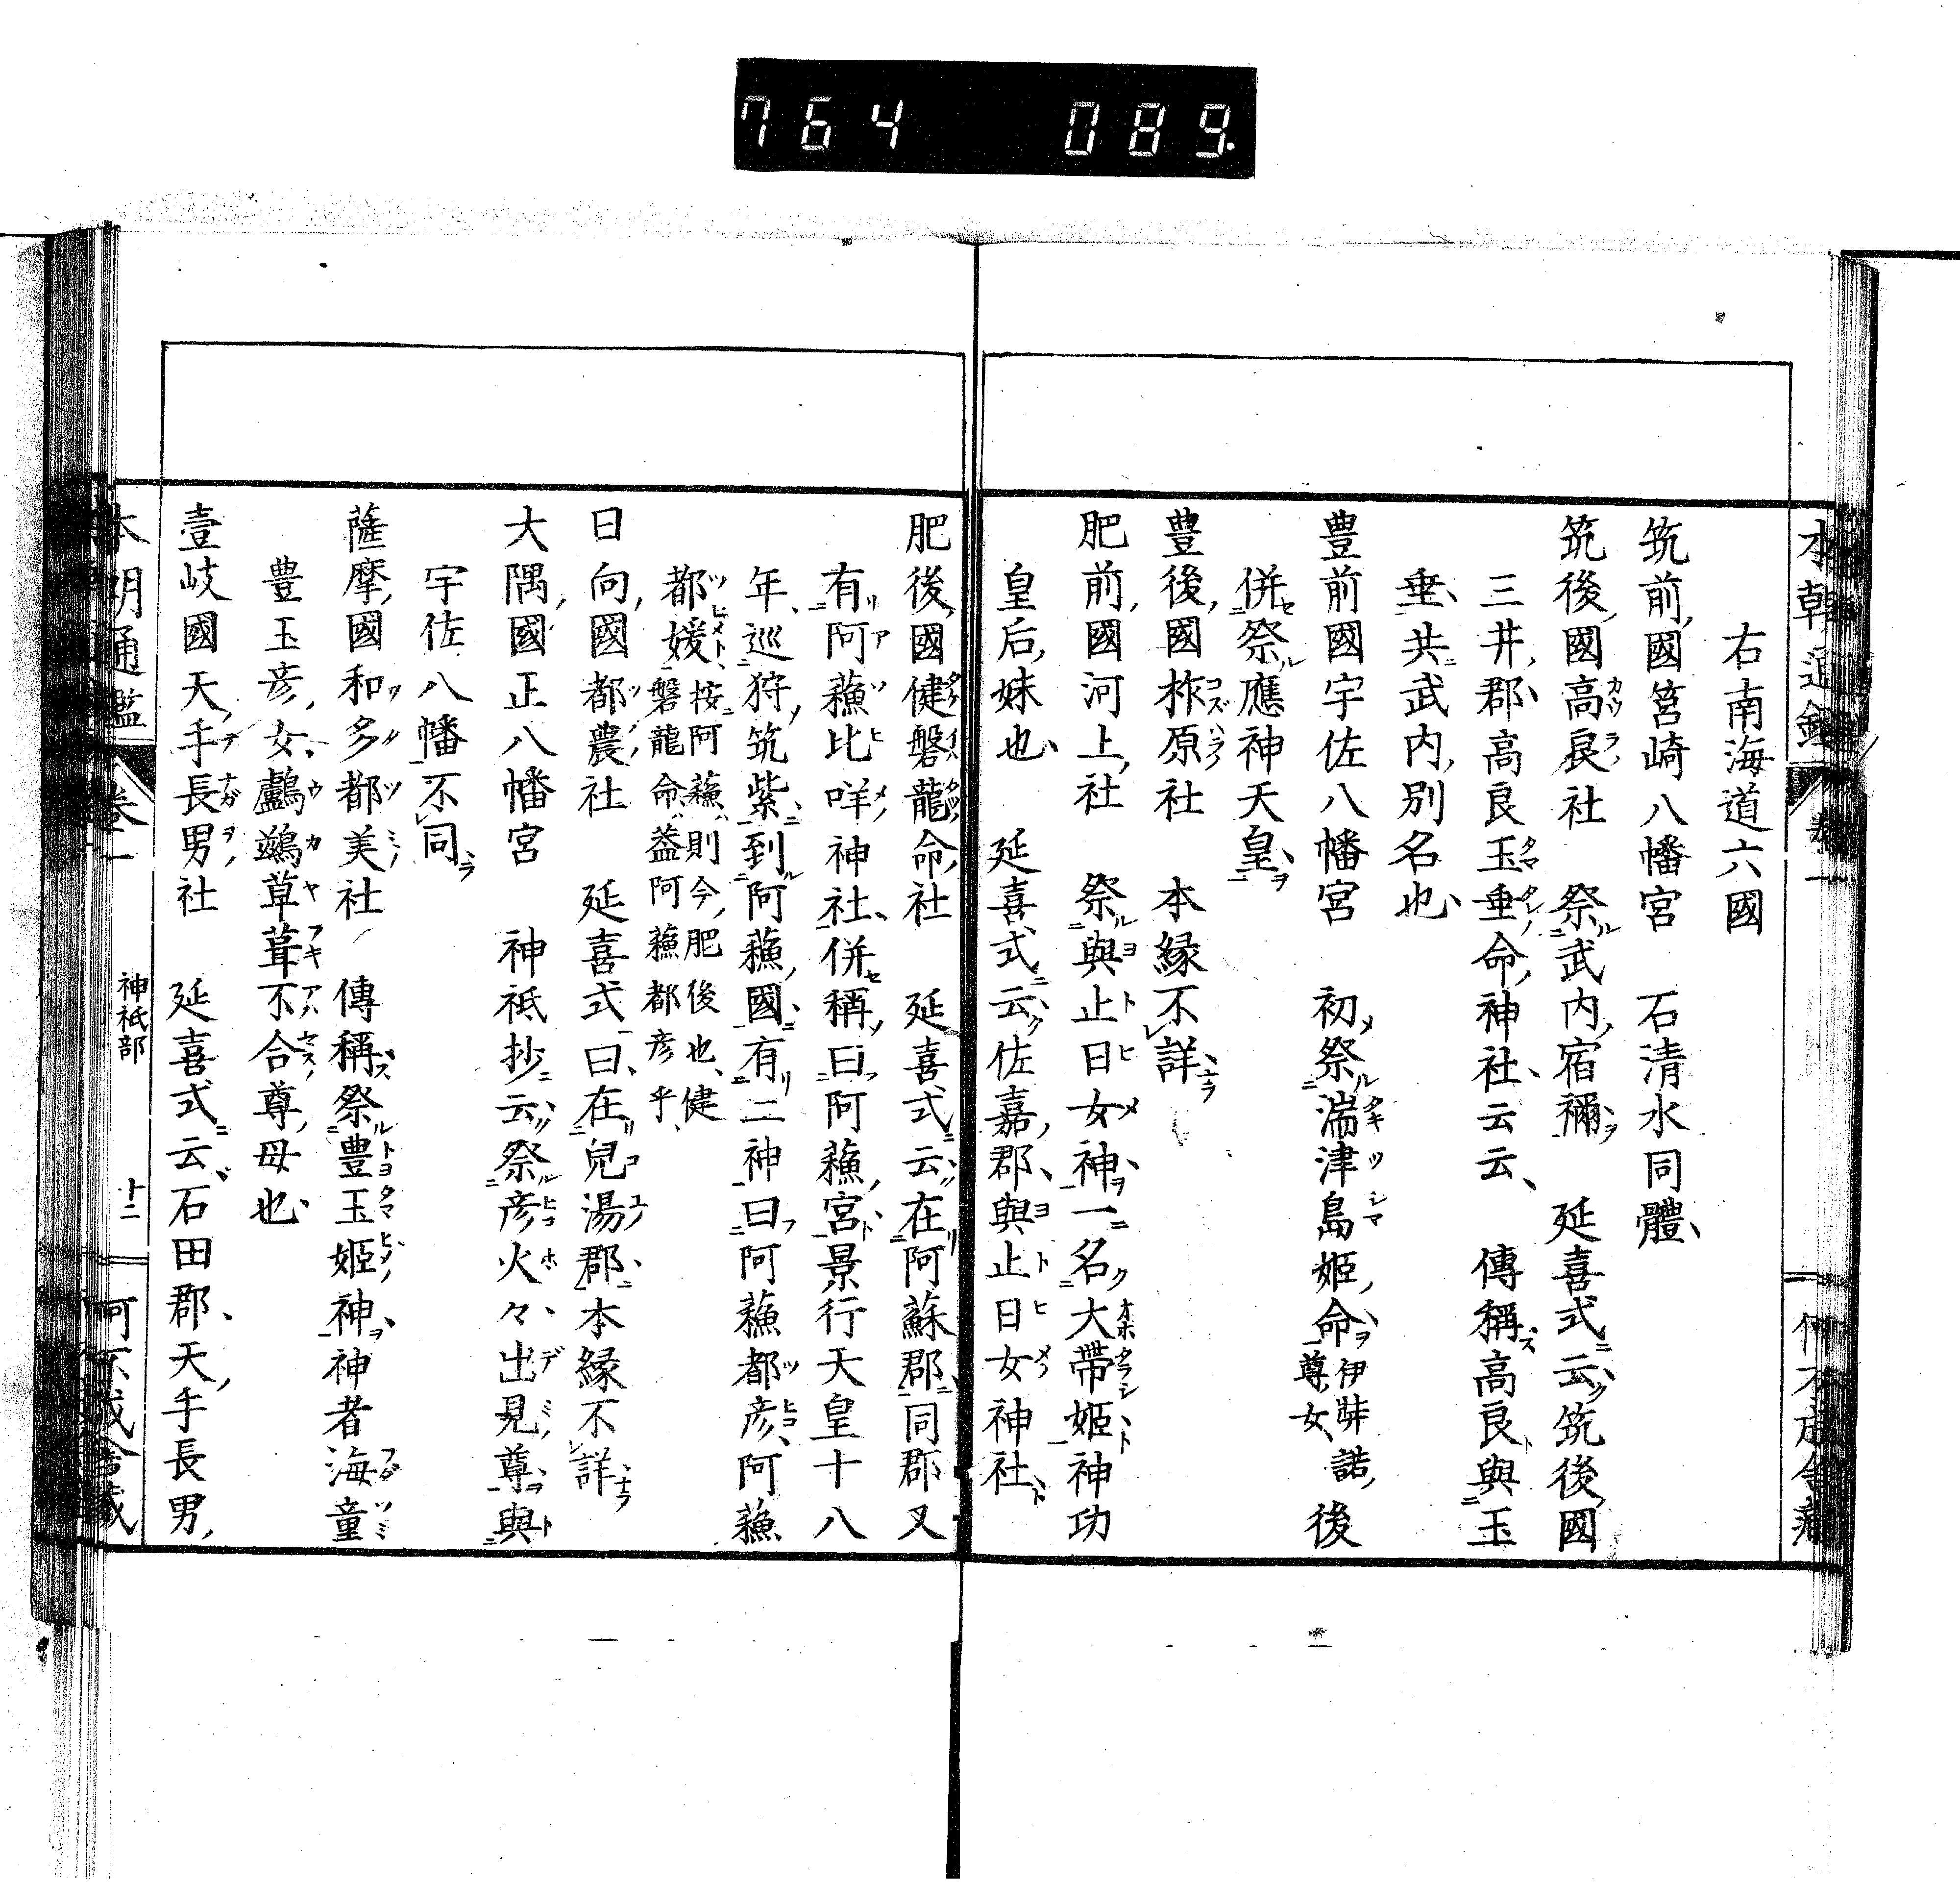 764 089.
本朝通鑑 卷一 何不成舍藏
右南海道六國
筑前國筥崎八幡宮 石清水同體
筑後國高良社 祭武内宿禰 延喜式云筑後國
三井郡高良玉垂命神社云云 傳稱高良與玉
垂共武内別名也
豊前國宇佐八幡宮 初祭湍津島姫命伊弉諾尊女後
併祭應神天皇
豊後國柞原社 本縁不詳
肥前國河上社 祭與止日女神一名大帶姫神功
皇后妹也 延喜式云佐嘉郡與止日女神社
肥後國健磐龍命社 延喜式云在阿蘇郡同郡又
有阿蘓比咩神社併稱曰阿蘓宮景行天皇十八
年巡狩筑紫到阿蘓國有二神曰阿蘓都彦阿蘓
都媛按阿蘓則今肥後也健磐龍命蓋阿蘓都彦乎
日向國都農社 延喜式曰在兒湯郡本縁不詳
大隅國正八幡宮 神祇抄云祭彦火々出見尊與
宇佐八幡不同
薩摩國和多都美社 傳稱祭豊玉姫神神者海童
豊玉彦女鸕鷀草葺不合尊母也
壹岐國天手長男社 延喜式云石田郡天手長男
本朝通鑑 卷一 神祇部 十二 何不成舍藏